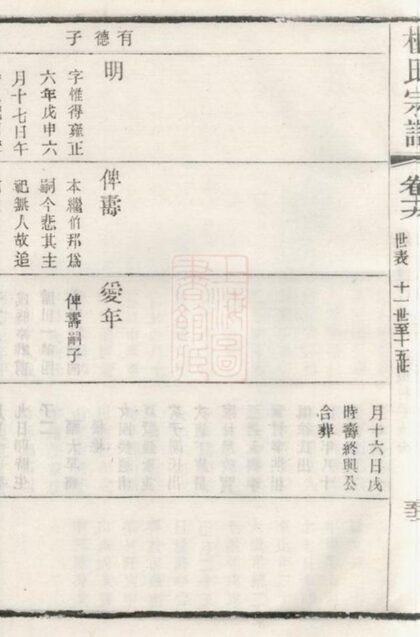 氏宗譜
卷
世表 十一世至十五世
月十六日戌
時壽終與公
合葬
有德子
明
字惟得雍正
六年戊申六
月十七日午
俾壽
本繼伯邦為
嗣今悲其主
祀無人故追
愛年
俾壽嗣子
上海圖
書館藏